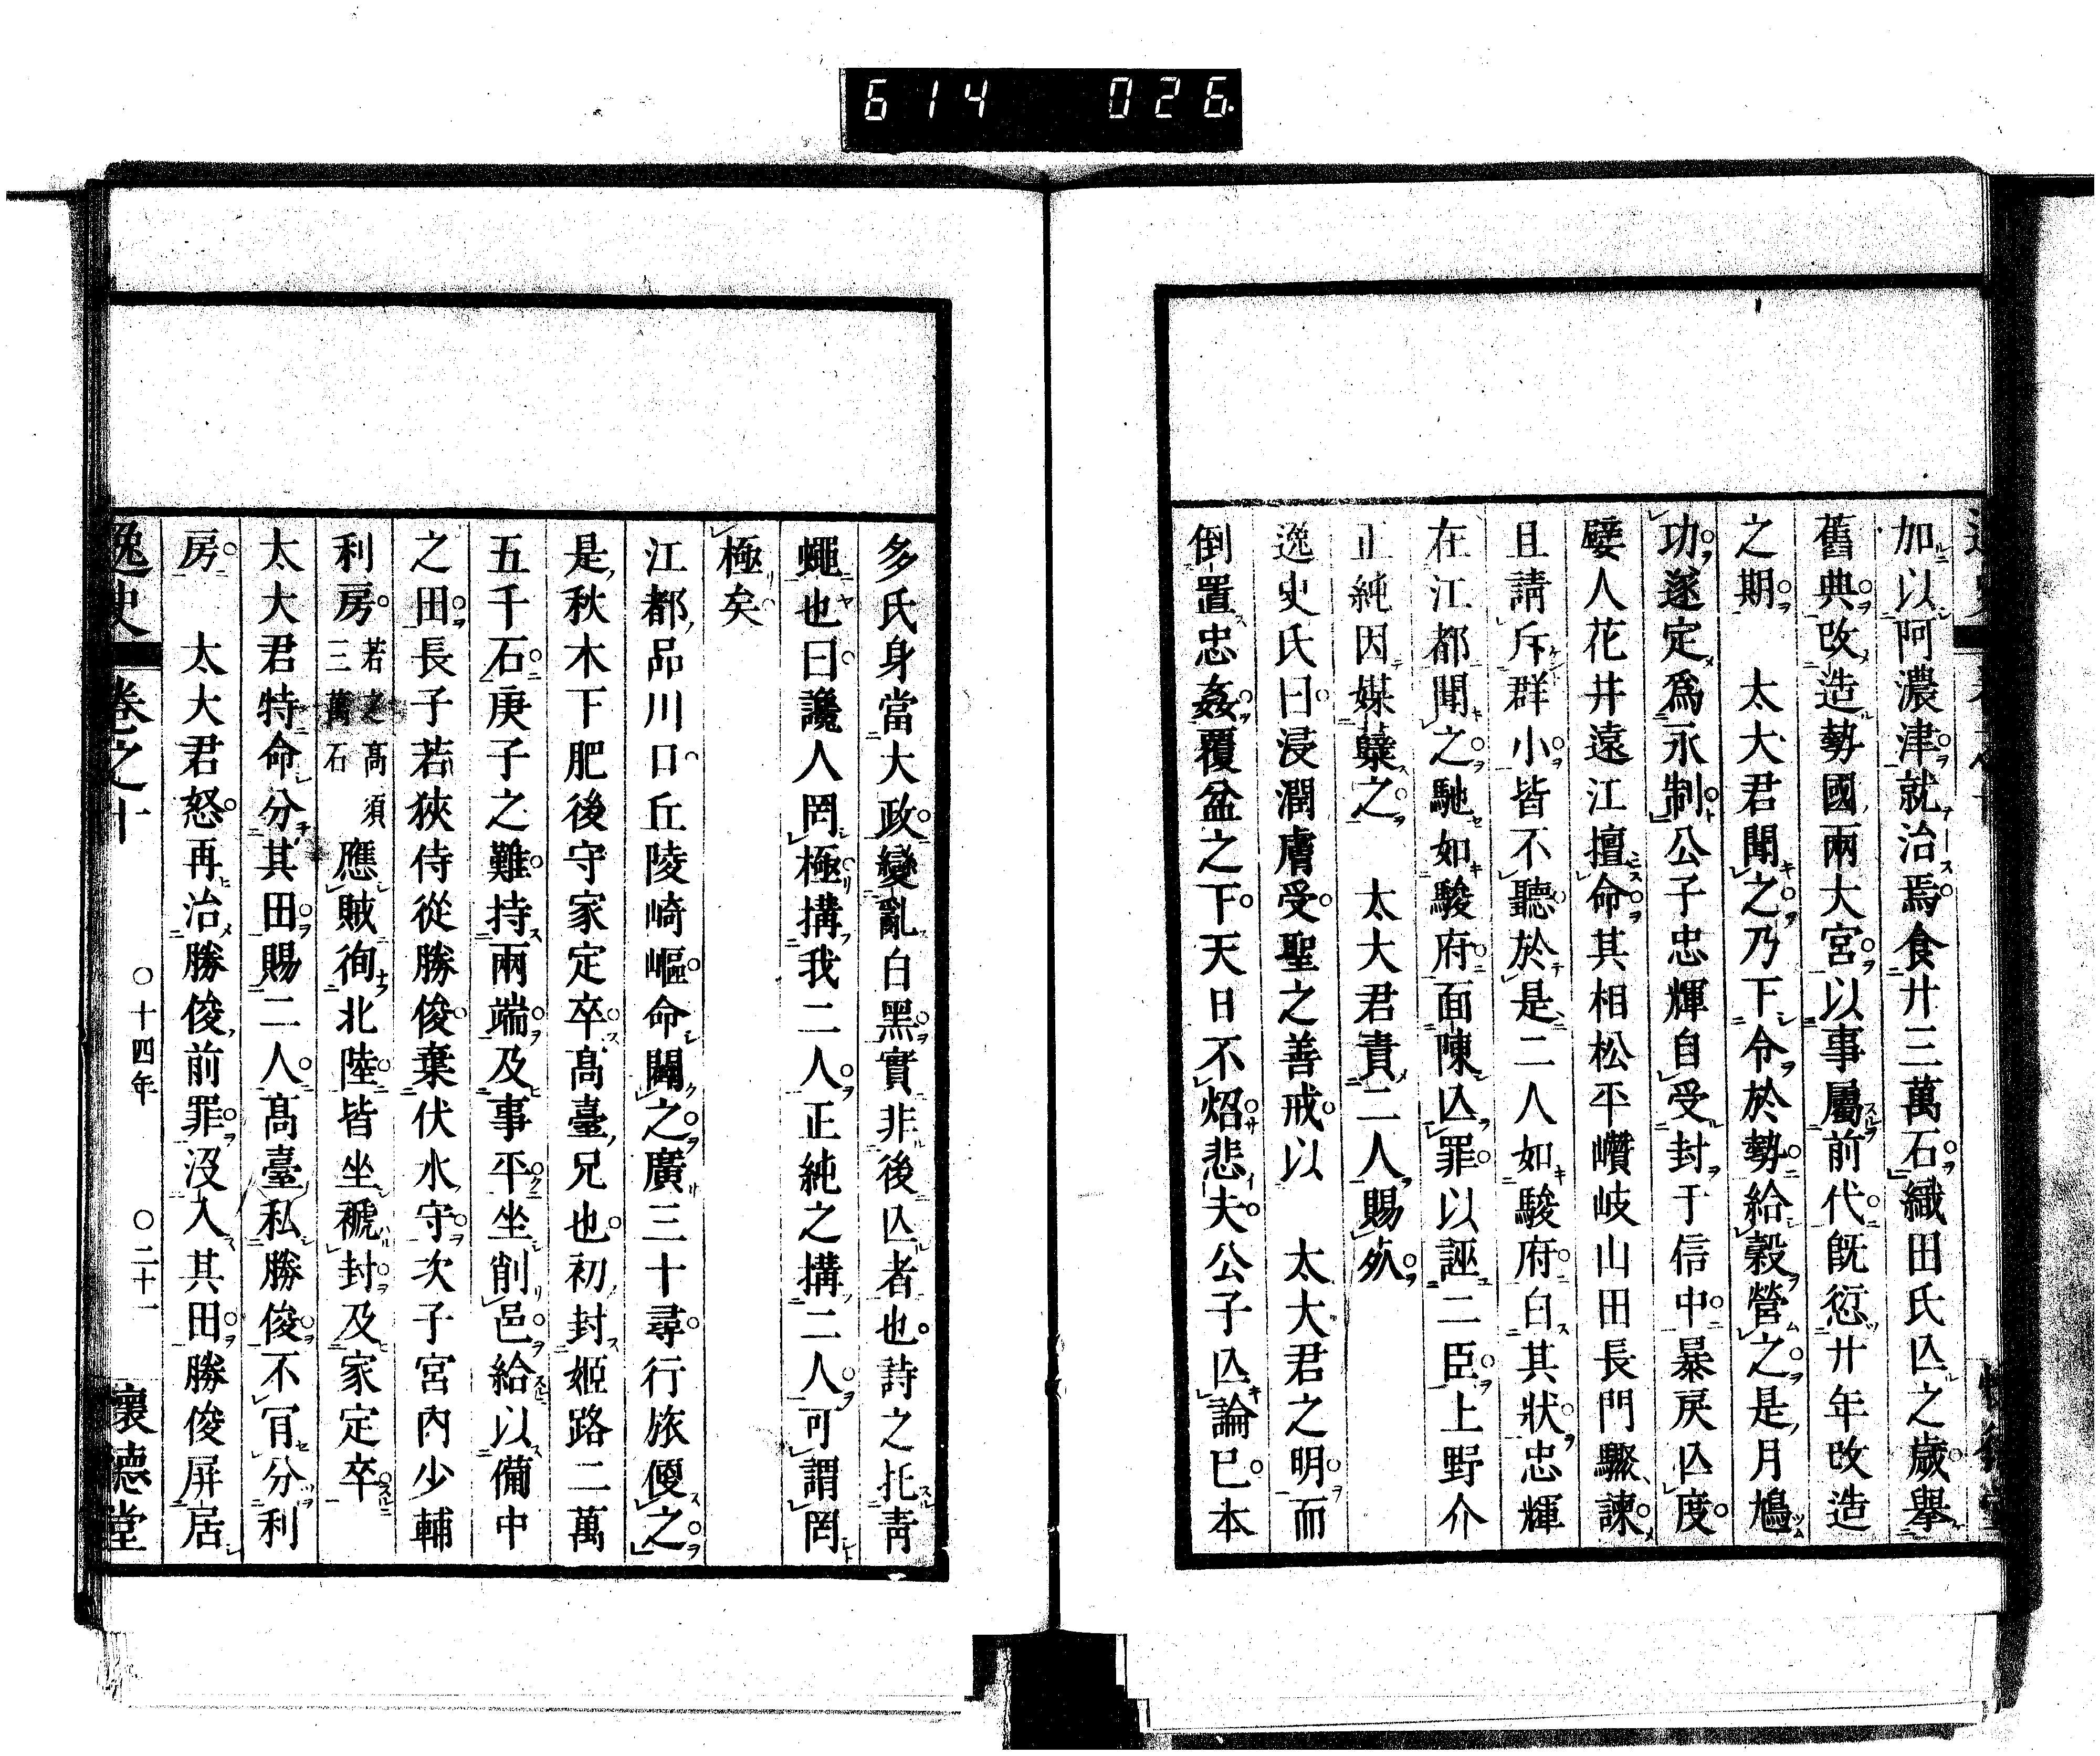 614 026
加以阿濃津就治焉食廿三萬石織田氏亾之歲舉
舊典改造勢國兩大宮以事屬前代旣愆廿年改造
之期　太大君聞之乃下令於勢給穀營之是月鳩
功遂定爲永制公子忠輝自受封于信中暴戾亾度
嬖人花井遠江擅命其相松平讃岐山田長門驟諫
且請斥群小皆不聽於是二人如駿府白其狀忠輝
在江都聞之馳如駿府面陳亾罪以誣二臣上野介
正純因媒糱之　太大君責二人賜死
逸史氏曰浸潤膚受聖之善戒以　太大君之明而
倒置忠姦覆盆之下天日不炤悲夫公子亾論已本
多氏身當大政變亂白黑實非後亾者也詩之托靑
蠅也曰讒人罔極搆我二人正純之搆二人可謂罔
極矣
江都品川口丘陵崎嶇命闢之廣三十尋行旅便之
是秋木下肥後守家定卒髙臺兄也初封姬路二萬
五千石庚子之難持兩端及事平坐削邑給以備中
之田長子若狹侍從勝俊棄伏水守次子宮內少輔
利房若之髙須三萬石應賊徇北陸皆坐褫封及家定卒
太大君特命分其田賜二人髙臺私勝俊不肯分利
房　太大君怒再治勝俊前罪沒入其田勝俊屏居
逸史　卷之十　〇十四年　〇二十一　懷德堂